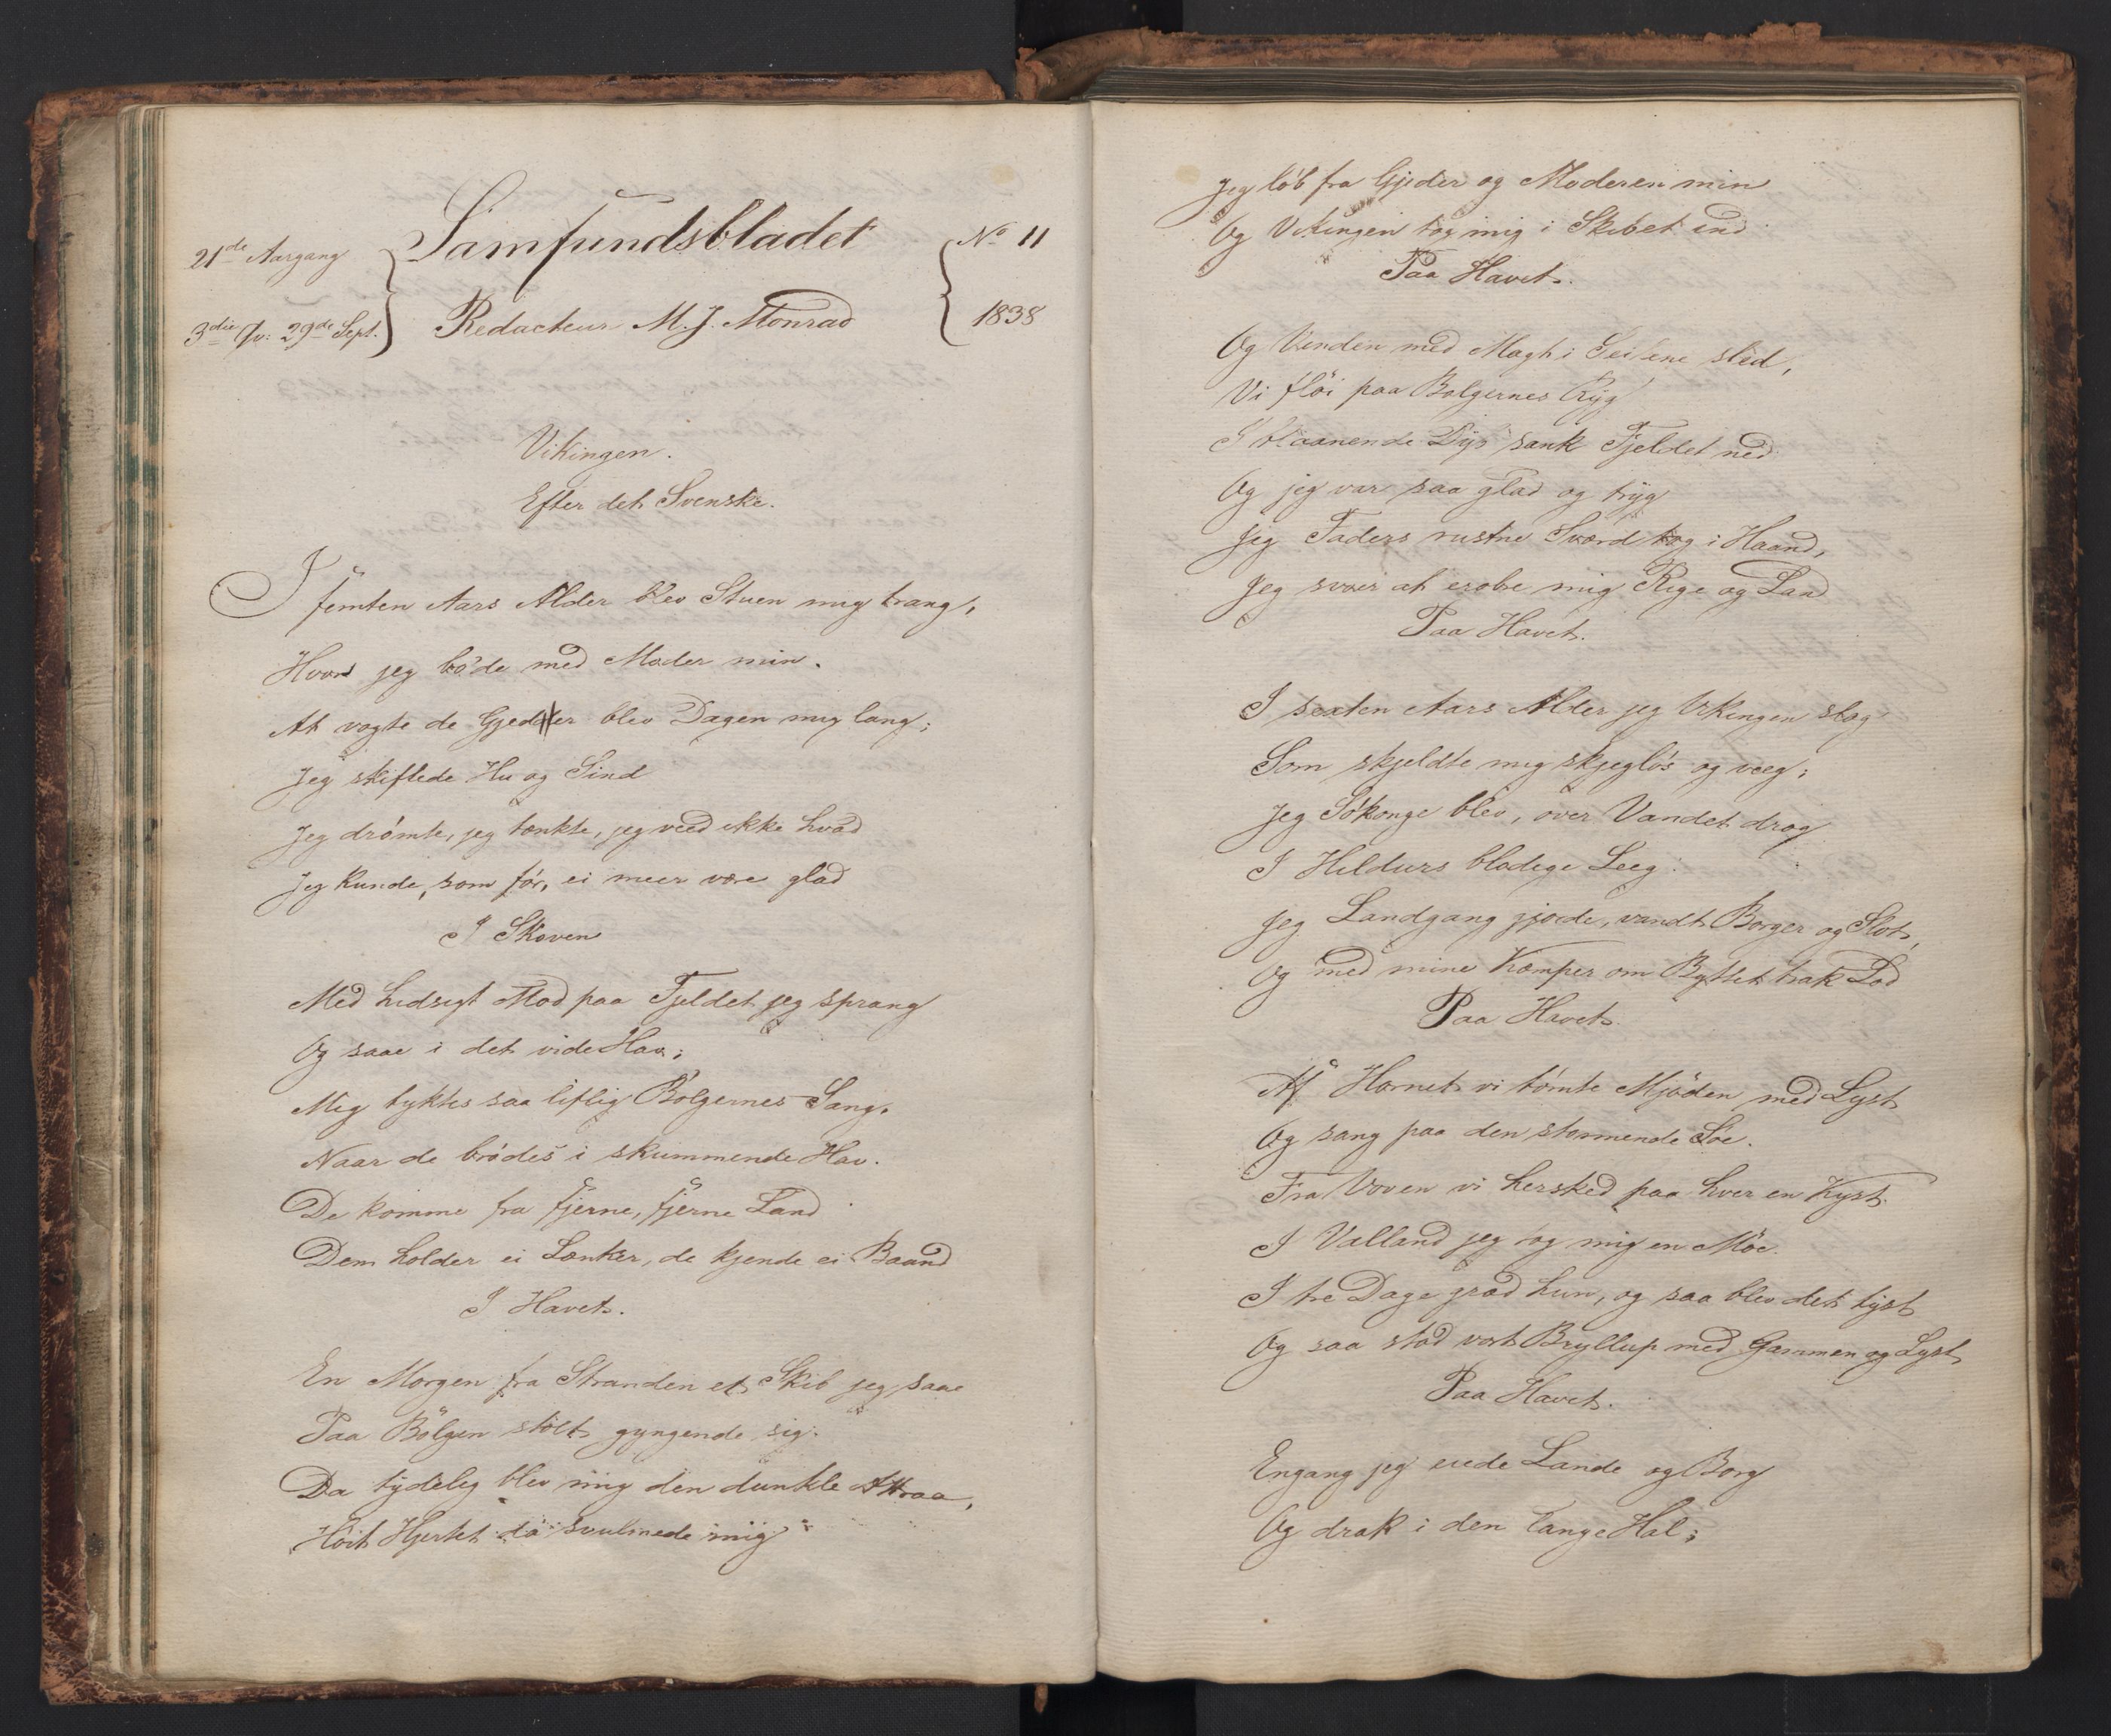 21de Aargang
3die Qv: 29de Sept.
Samfundsbladet
Redacteur M. J. Monrad
No 11
1838
Vikingen.
Efter det Svenske.
I femten Aars Alder blev Stuen mig trang,
Hvor jeg boede med Moder min.
At vogte de Gjeder blev Dagen mig lang;
Jeg skiftede Hu og Sind
Jeg drömte, jeg tænkte, jeg veed ikke hvad
Jeg kunde, som för, ei meer være glad
I Skoven
Med hidsigt Mod paa Fjeldet jeg sprang
Og saae i det vide Hav;
Mig tyktes saa liflig Bölgernes Sang,
Naar de brödes i skummende Hav.
De komme fra fjerne, fjerne Land
Dem holder ei Lænker, de kjende ei Baand
I Havet.
En Morgen fra Stranden et Skib jeg saae
Paa Bölgen stolt gyngende sig.
Da tydelig blev mig den dunkle Attraa,
Höit Hjertet da svulmede mig
Jeg löb fra Gjeder og Moderen min
Og Vikingen tog mig i Skibet ind
Paa Havet.
Og Vinden med Magt i Seilene sled,
Vi flöi paa Bolgernes Ryg
I blaanende Dyb sank Fjeldet ned
Og jeg var saa glad og tryg
Jeg Faders rustne Sværd tog i Haand,
Jeg svoer at erobre mig Rige og Land
Paa Havet.
I sexten Aars Alder jeg Vikingen slog
Som skjeldte mig skjeglös og veeg;
Jeg Sökonge blev, over Vandet drog
I Hildurs blodige Leeg.
Jeg Landgang gjorde, vandt Borger og Slot,
Og med mine Kæmper om Byttet trak Lod
Paa Havet.
Af Hornet vi tömte Mjöden med Lyst
Og sang paa den stormende Söe.
Fra Voven vi hersked paa hver en Kyst.
I Valland jeg tog mig en Möe.
I tre Dage græd hun, og saa blev det tyst
Og saa stod vort Bryllup med Gammen og Lyst
Paa Havet.
Engang jeg eiede Lande og Borg
Og drak i den lange Hal;